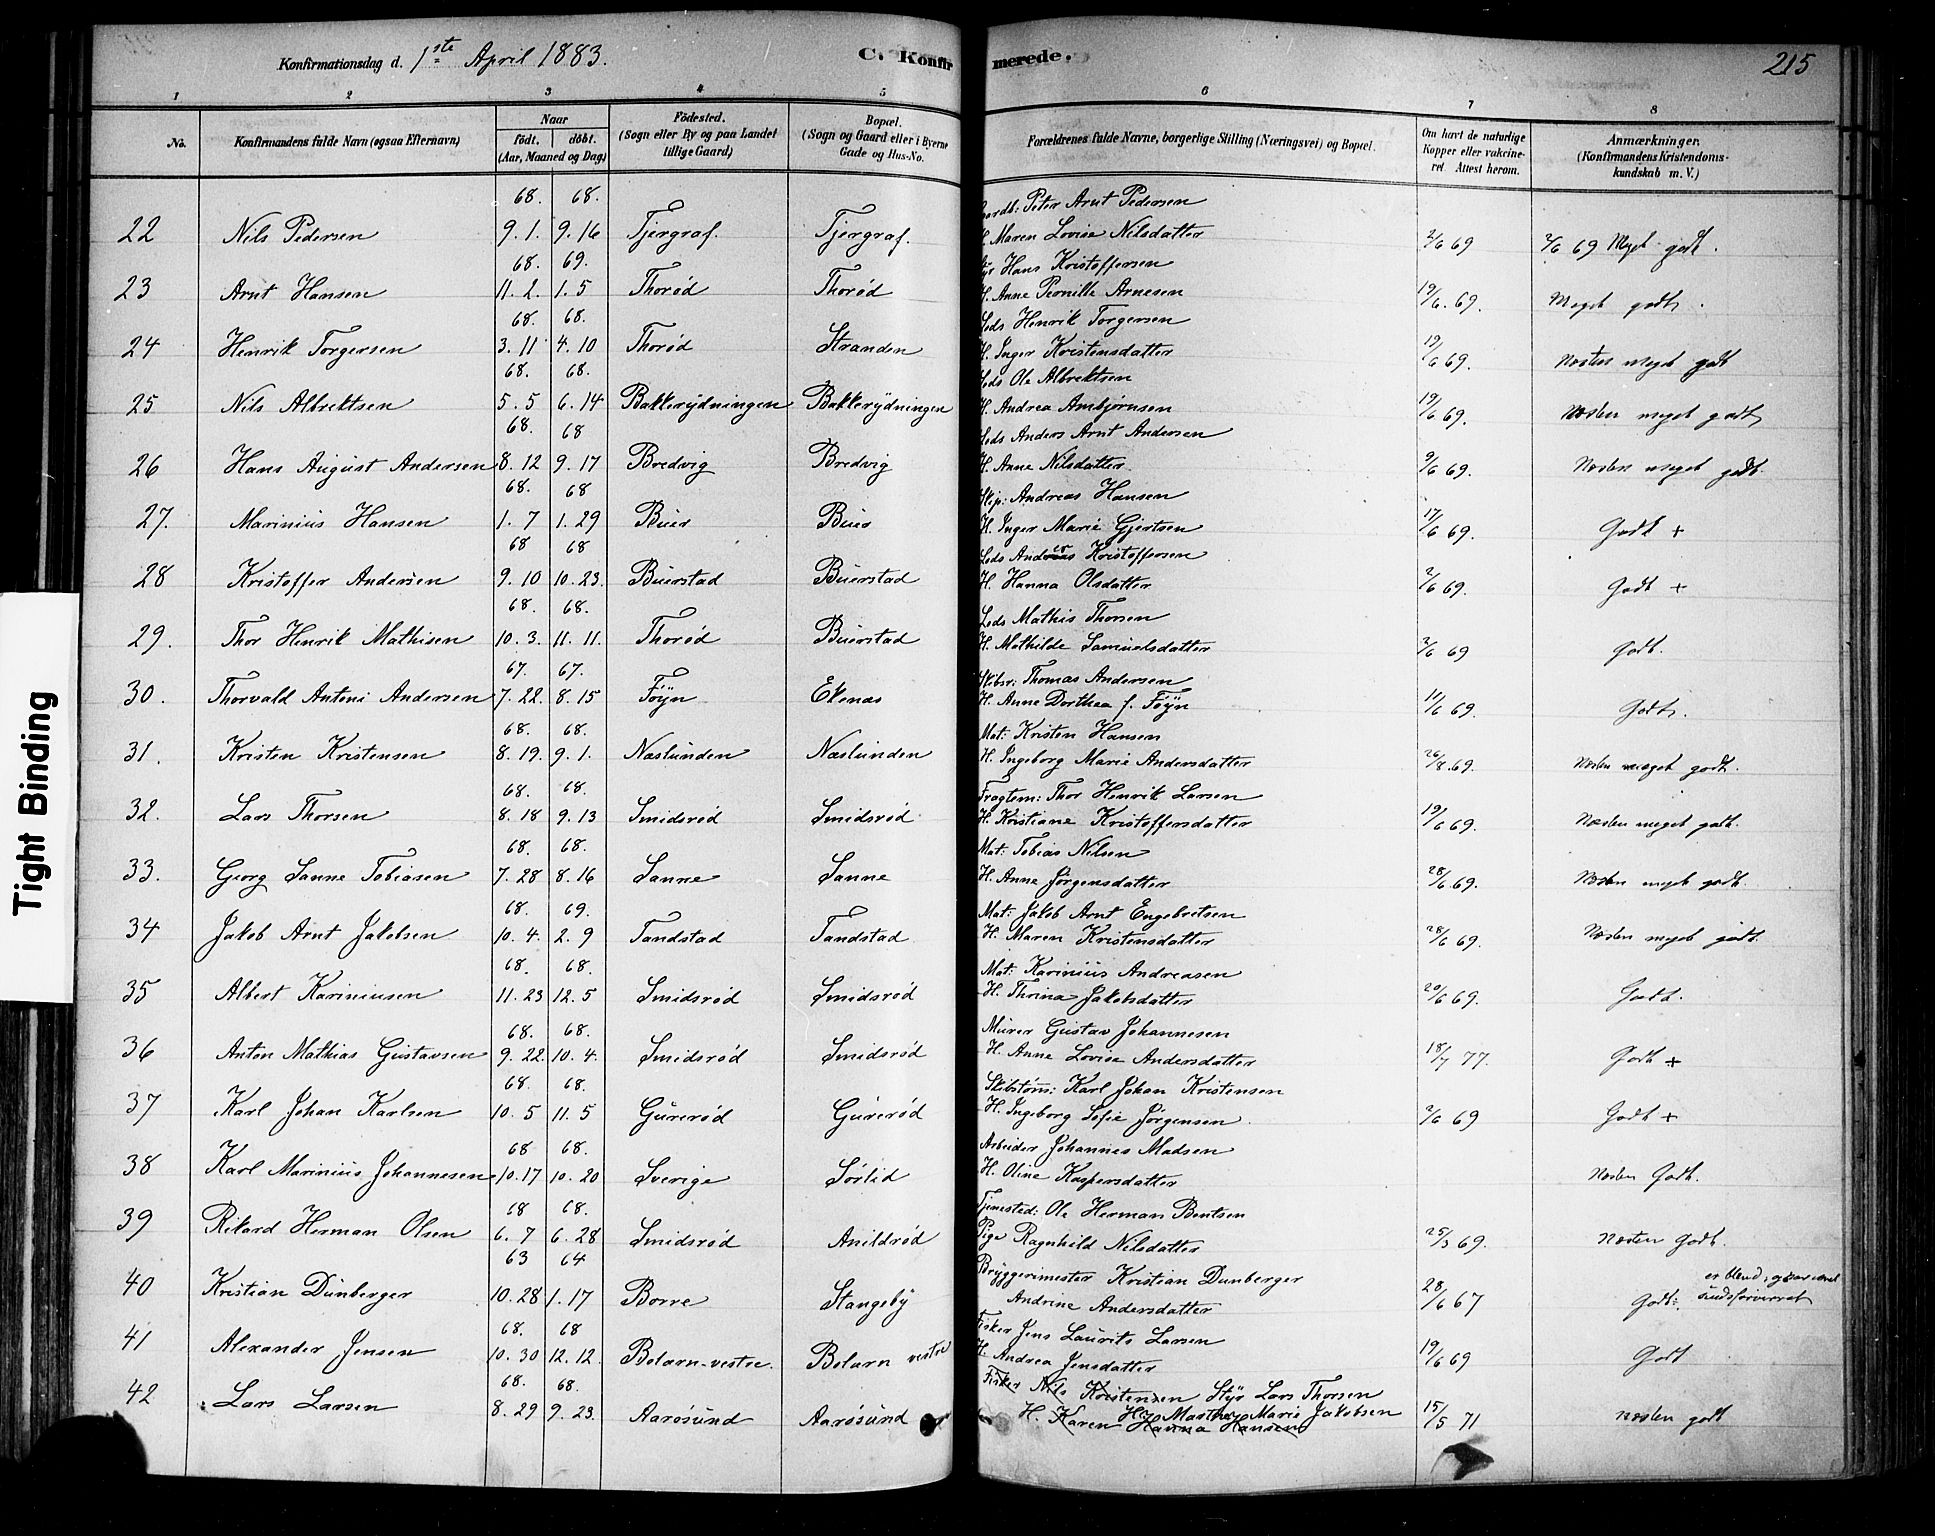 Konfirmationsdag d. 1ste April 1883. C. Konfirmerede. 215
1 2 3 4 5 6 7 8
No. Konfirmandens fulde Navn (ogsaa Efternavn) Naar født. døbt. (Aar, Maaned og Dag) Fødested. (Sogn eller By og paa Landet tillige Gaard) Bopæl. (Sogn og Gaard eller i Byerne Gade og Hus-No. Forældrenes fulde Navne, borgerlige Stilling (Næringsvei) og Bopæl. Om havt de naturlige Kopper eller vakcineret. Attest herom. Anmærkninger. (Konfirmandens Kristendomskundskab m. V.)
68. 68. Peter Arnt Pedersen
22 Nils Pedersen 9. 1. 9. 16 Tjergraf. Tjergraf. H. Maren Lovise Nilsdatter 2/6 69 2/6 69 Meget godt.
68. 69. Hans Kristoffersen
23 Arnt Hansen 11. 2. 1. 5 Thorød Thorød H. Anne Pernille Arnesen 19/6. 69. Meget godt.
68. 68. Leds Henrik Torgersen
24 Henrik Torgersen 3. 11 4. 10 Thorød Stranden H. Inger Kristensdatter 19/6 69. Næsten meget godt
68. 68. Leds Ole Albrektsen
25 Nils Albrektsen 5. 5 6. 14 Bakkerydningen Bakkerydningen H. Andrea Ambjørnsen 19/6 69. Næsten meget godt
68. 68 Leds Anders Arnt Andersen
26 Hans August Andersen 8. 12 9. 17 Bredvig Bredvig H. Anne Nilsdatter 9/6 69. Næsten meget godt.
68. 68 Skip: Andreas Hansen
27. Marinius Hansen 1. 7 1. 29 Buer Buer H. Inger Marie Gjertsen 17/6 69. Godt +
68 68 Leds Anders Kristoffersen
28 Kristoffer Andersen 9. 10 10. 23. Buerstad Buerstad H. Hanna Olsdatter 2/6 69. Godt +
68. 68. Leds Mathis Thorsen
29. Thor Henrik Mathisen 10. 3. 11. 11. Thorød Buerstad H. Mathilde Samuelsdatter 3/6 69 Godt.
67. 67. Skibsr: Thomas Andersen
30. Thorvald Antoni Andersen 7. 22. 8. 15 Føyn Ekenæs H. Anne Dorthea f. Føyn 11/6 69. Godt.
68. 68. Mat: Kristen Hansen
31. Kristen Kristensen 8. 19. 9. 1. Næslunden Næslunden H. Ingeborg Marie Andersdatter 26/8. 69. Næsten meget godt.
68. 68. Fragtem: Thor Henrik Larsen
32. Lars Thorsen 8. 18 9. 13 Smidsrød Smidsrød H. Kristiane Kristoffersdatter 19/6 69. Næsten meget godt.
68. 68. Mat: Tobias Nilsen
33. Georg Sanne Tobiasen 7. 28 8. 16 Sanne Sanne H. Anne Jørgensdatter 28/6. 69. Næsten meget godt.
68. 69. Mat: Jakob Arnt Engebretsen
34 Jakob Arnt Jakobsen 10. 4. 2. 9 Tandstad Tandstad H. Maren Kristensdatter 28/6 69. Næsten meget godt.
68. 68. Mat: Karinius Andreasen
35 Albert Kariniusen 11. 23 12. 5 Smidsrød Smidsrød H. Thrina Jakobsdatter 20/6 69. Godt.
68. 68. Murer Gustav Johannesen
36 Anton Mathias Gustavsen 9. 22. 10. 4. Smidsrød Smidsrød H. Anne Lovise Andersdatter 18/7 77. Godt +
68. 68. Skibstøm: Karl Johan Kristensen
37 Karl Johan Karlsen 10. 5 11. 5 Gurerød Gurerød H. Ingeborg Sofie Jørgensen. 2/6 69 Godt +
68 68. Arbeider Johannes Madsen
38 Karl Marinius Johannesen 10. 17 10. 20 Sverige Sørlid H. Oline Kaspersdatter Næsten Godt.
68 68. Tjenested: Ole Herman Bentsen
39 Rikard Herman Olsen 6. 7 6. 28 Smidsrød Anildrød Pige Ragnhild Nilsdatter 25/3 69. Næsten Godt.
63 64 Bryggerimester Kristian Dunberger er blind,
40 Kristian Dunberger 10. 28 1. 17 Borre Stangeby Andrine Andersdatter 28/6 67 Godt: sindsforvirret
68. 68 Fisker Jens Laurits Larsen
41 Alexander Jensen 10. 30 12. 12. Bolærn-vestre. Bolærn vestre H. Andrea Jensdatter 19/6 69 Godt
68. 68. Fisker Nils Kristensen Styr Lars Thorsen
42 Lars Larsen 8. 29 9. 23. Aarøsund Aarøsund H. Karen Hanna Hansen H. Marthe Marie Jakobsen 15/5 71 Næsten godt
Tight Binding